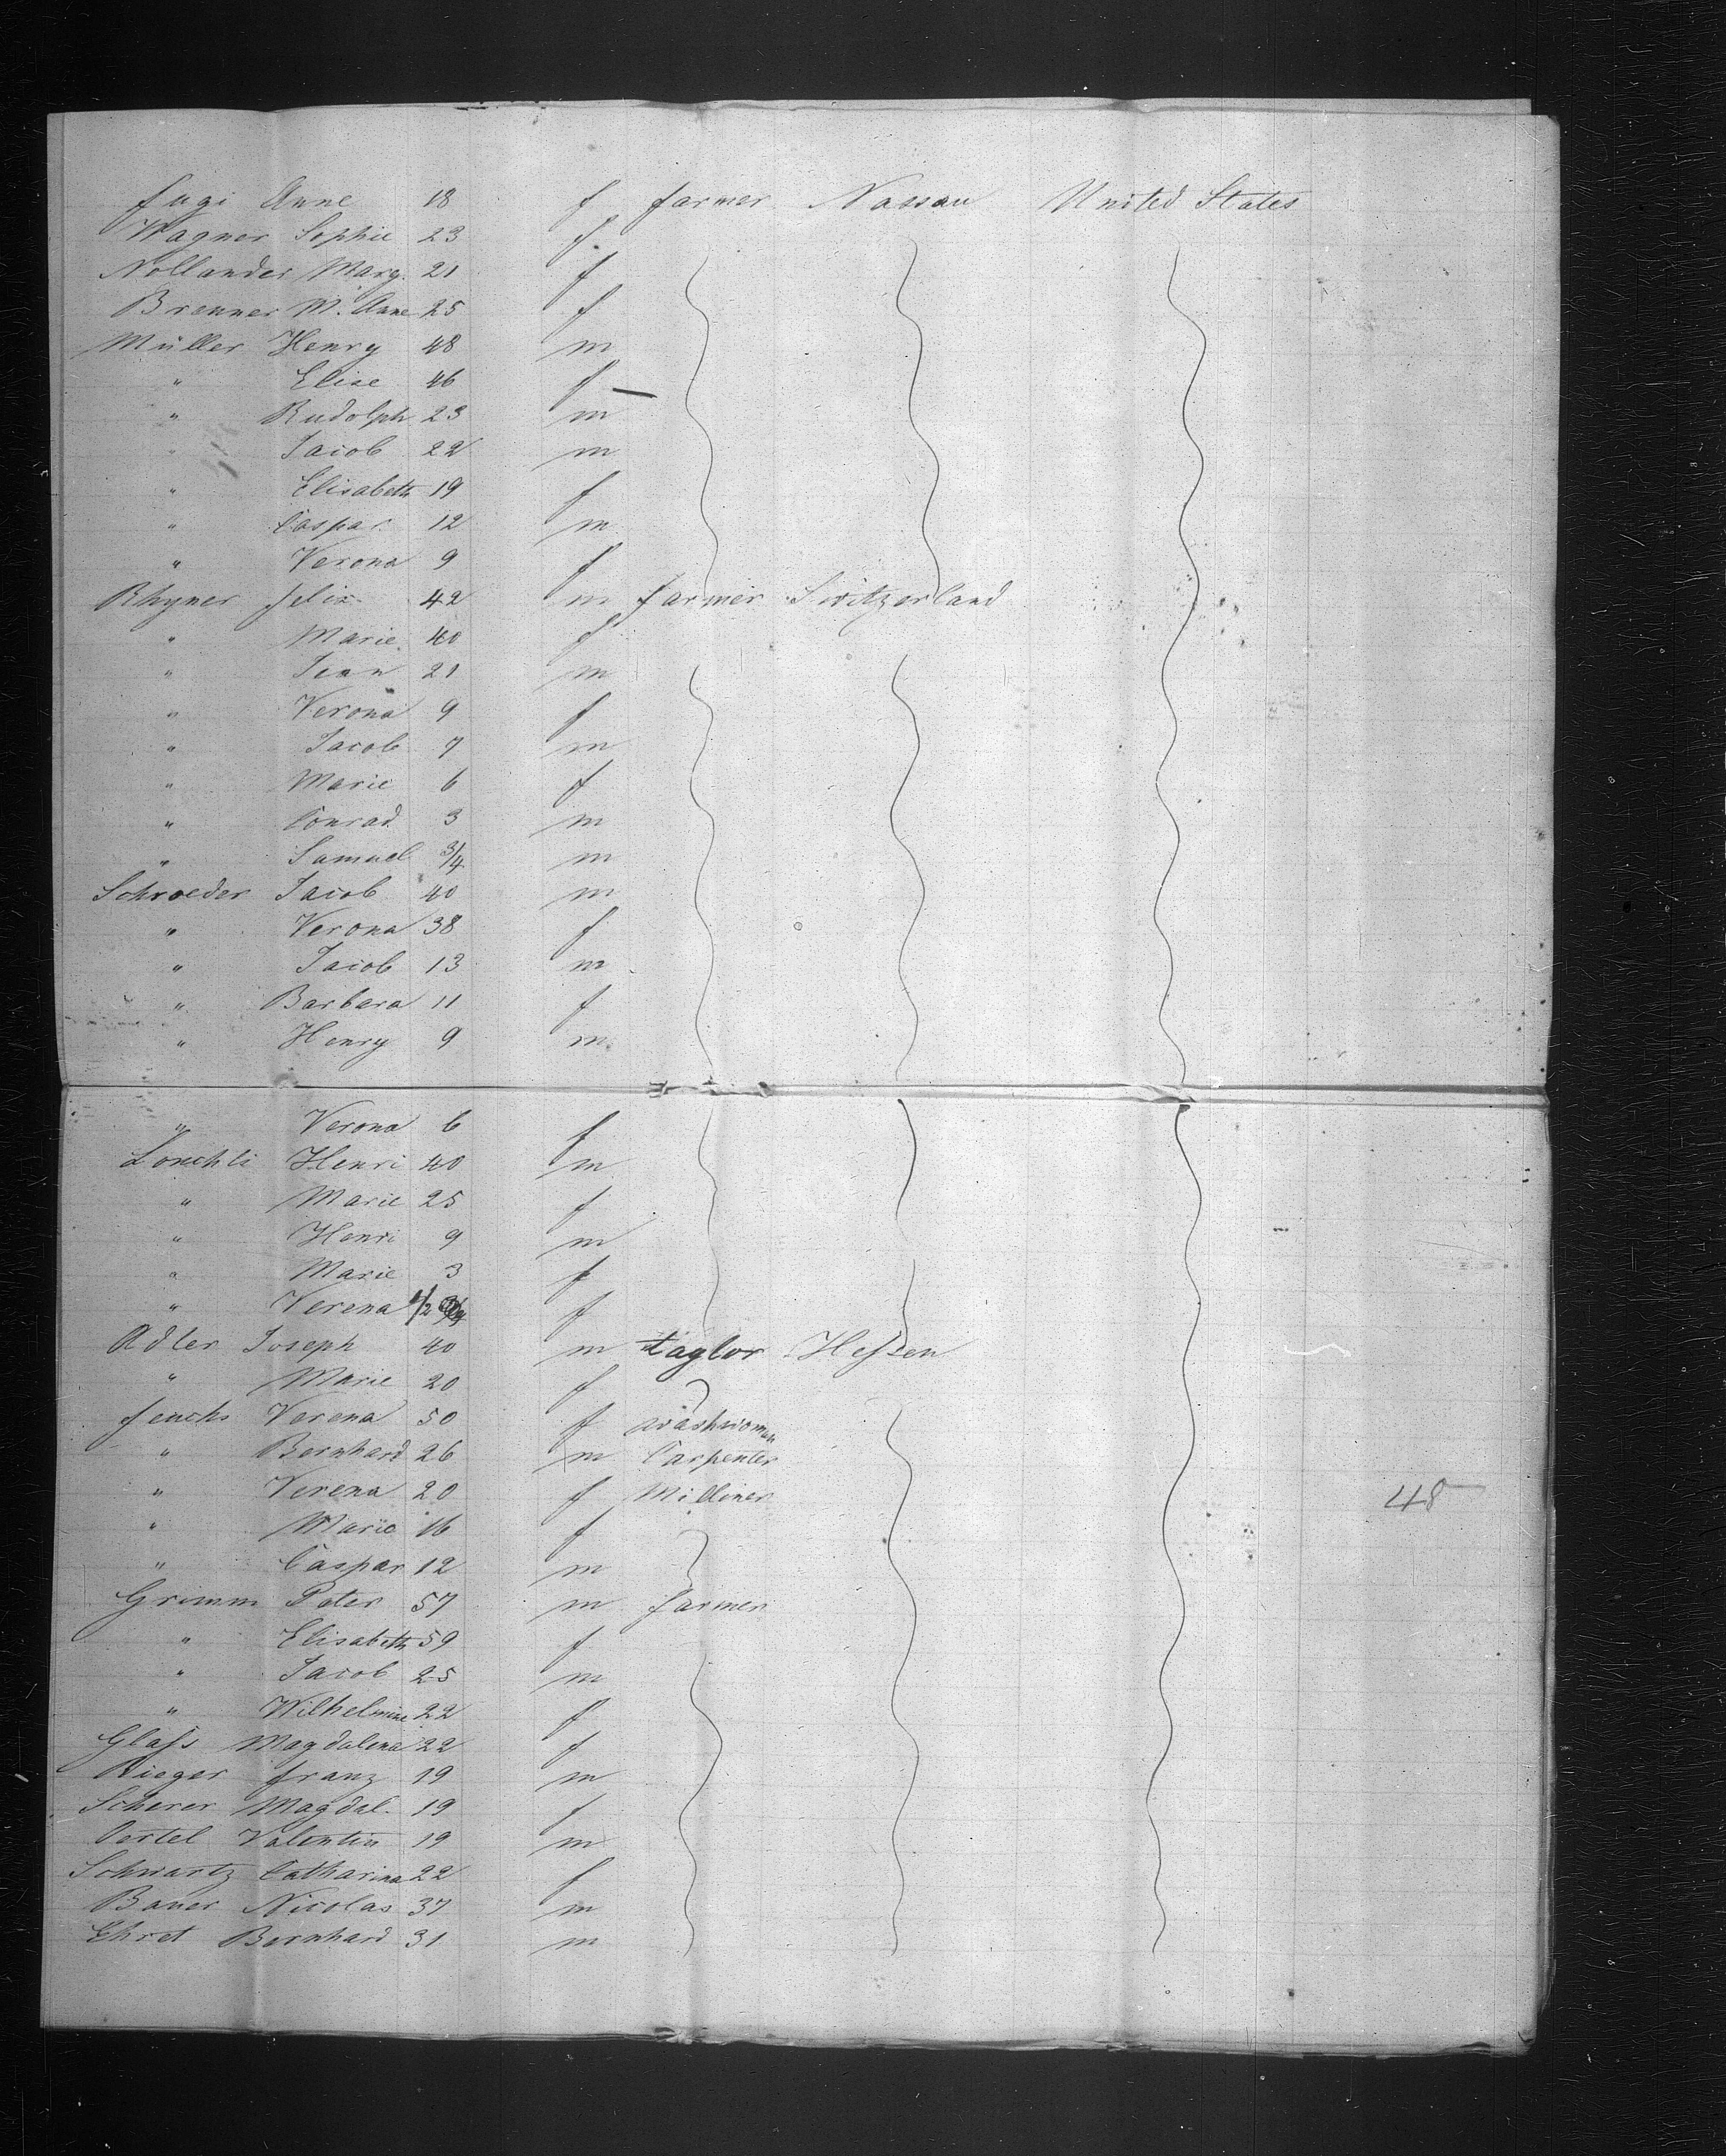 Fugi Anne 18 f farmer Nassau United States
Wagner Sophie 23 f
Nollander Marg. 21 f
Brenner M. Anne 25 f
Müller Henry 48 m
" Elise 46 f
" Rudolph 23 m
" Jacob 22 m
" Elisabeth 19 f
" Caspar 12 m
" Verona 9 f
Rhyner Felix 42 m farmer Switzerland
" Marie 40 f
" Jean 21 m
" Verona 9 f
" Jacob 7 m
" Marie 6 f
" Conrad 3 m
" Samuel 3/4 m
Schroeder Jacob 40 m
" Verona 38 f
" Jacob 13 m
" Barbara 11 f
" Henry 9 m
" Verona 6 f
Henri 40 m
" Marie 25 f
" Henri 9 m
" Marie 3 f
" Verena 1/2 f
Adler Joseph 40 m taylor Hessen
" Marie 20 f
Verena 50 f washwoman
" Bernhard 26 m Carpenter
" Verena 20 f Milliner 48
" Marie 16 f
" Caspar 12 m
Grimm Peter 57 m farmer
" Elisabeth 59 f
" Jacob 25 m
" Wilhelmine 22 f
Glass Magdalena 22 f
Rieger Franz 19 m
Scherer Magdal. 19 f
Oertel Valentin 19 m
Schwartz Catharina 22 f
Bauer Nicolas 37 m
Ehret Bernhard 31 m